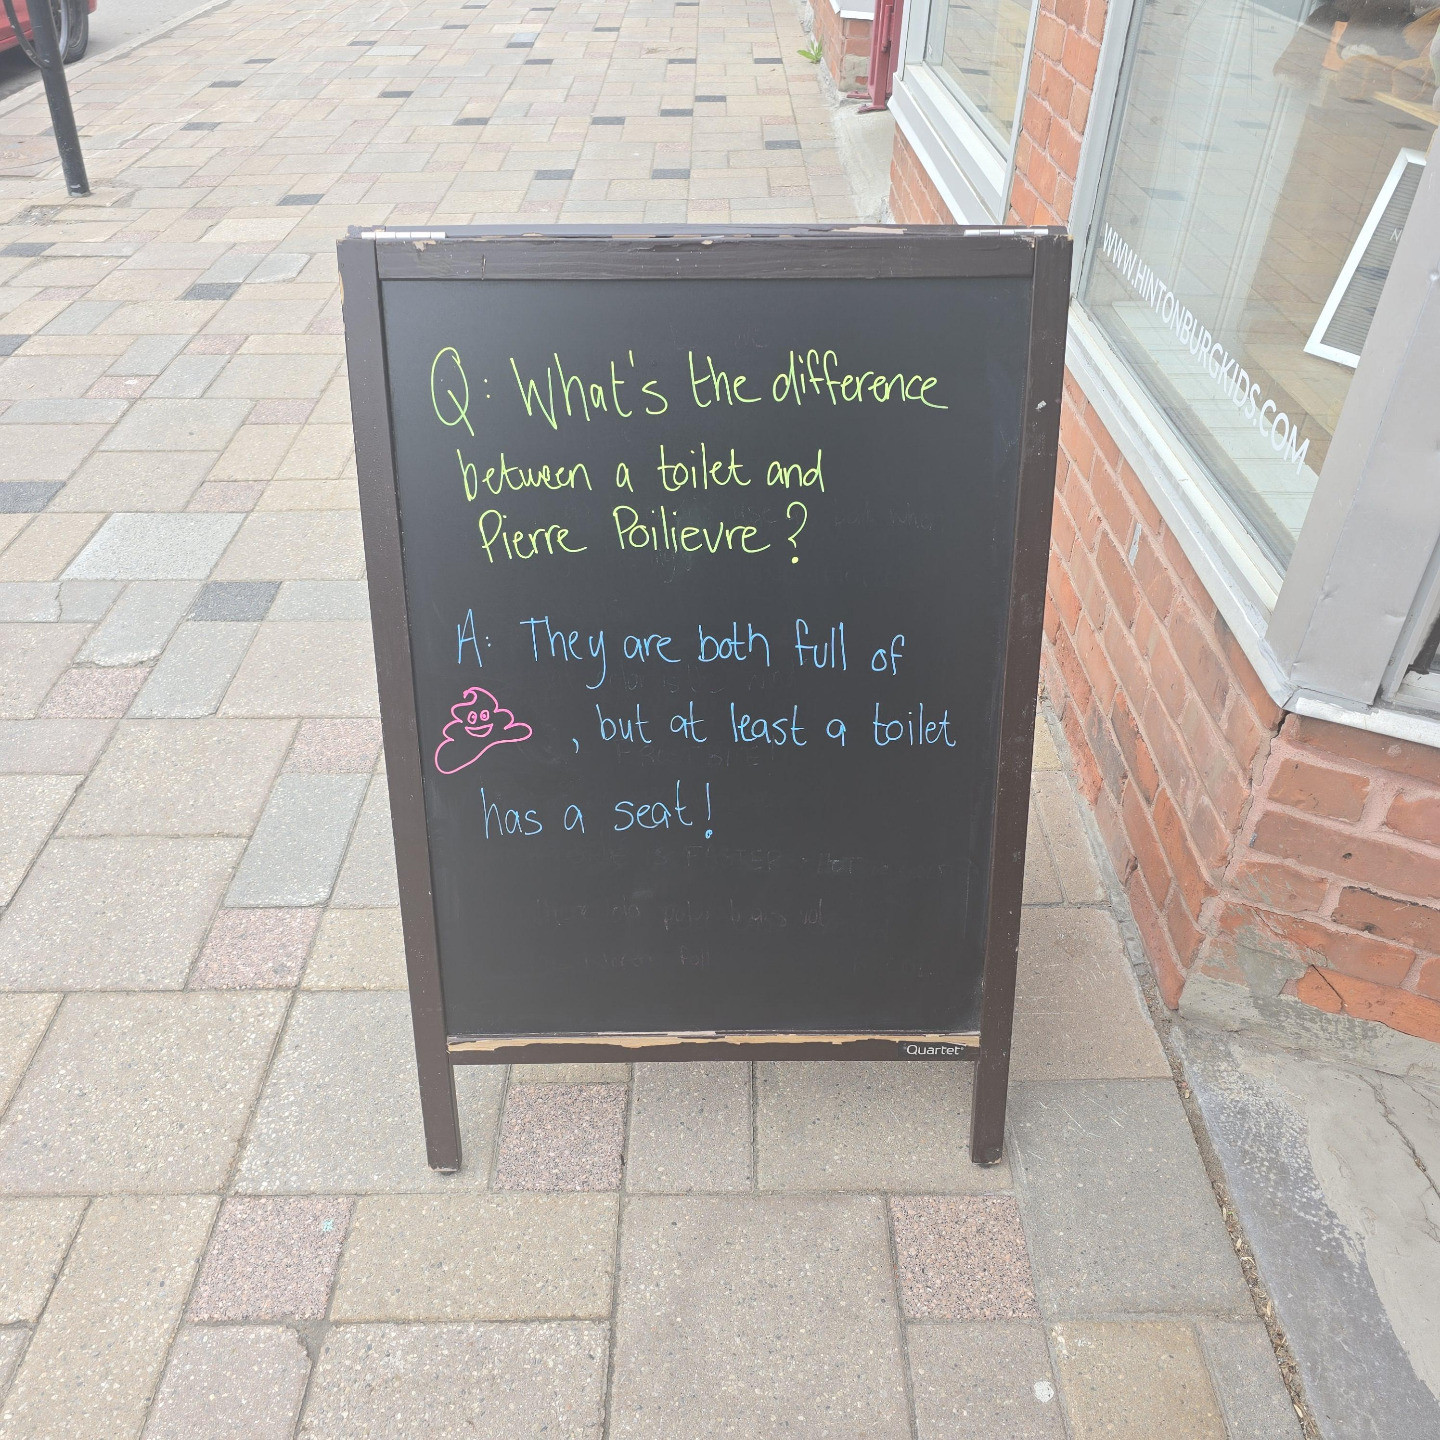 Q: What's the difference
between a toilet and
Pierre Poilievre?
A: They are both full of
, but at least a toilet
has a seat!
Quartet
WWW.HINTONBURGKIDS.COM